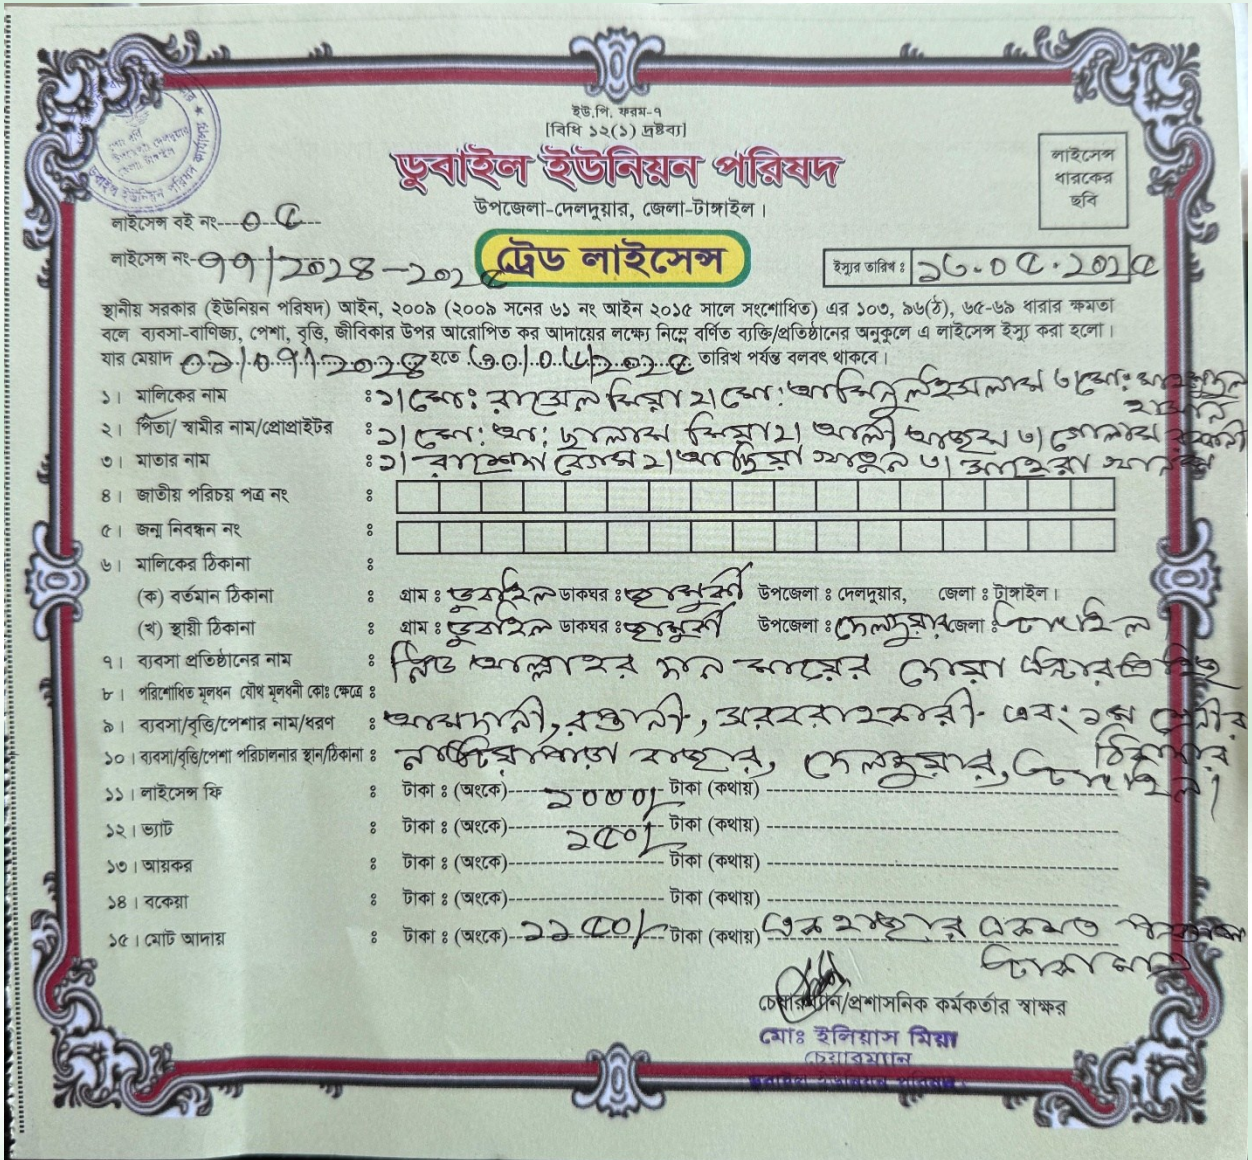 ইউ.পি. ফরম-৭
[বিধি ১২(১) দ্রষ্টব্য]
ডুবাইল ইউনিয়ন পরিষদ
উপজেলা-দেলদুয়ার, জেলা-টাঙ্গাইল।
লাইসেন্স ধারকের ছবি
লাইসেন্স বই নং---০৫
লাইসেন্স নং-৭৭/২০২৪-২০২৫
ট্রেড লাইসেন্স
ইস্যুর তারিখ ঃ ১৮.০৫.২০২৫
স্থানীয় সরকার (ইউনিয়ন পরিষদ) আইন, ২০০৯ (২০০৯ সনের ৬১ নং আইন ২০১৫ সালে সংশোধিত) এর ১০৩, ৯৬(ঠ), ৬৫-৬৯ ধারার ক্ষমতা
বলে ব্যবসা-বাণিজ্য, পেশা, বৃত্তি, জীবিকার উপর আরোপিত কর আদায়ের লক্ষ্যে নিম্নে বর্ণিত ব্যক্তি/প্রতিষ্ঠানের অনুকুলে এ লাইসেন্স ইস্যু করা হলো।
যার মেয়াদ ০১/০৭/২০২৪ হতে ৩০/০৬/২০২৫ তারিখ পর্যন্ত বলবৎ থাকবে।
১। মালিকের নাম ঃ ১। মোঃ রাসেল মিয়া ২। মোঃ আমিনুল ইসলাম ৩। মোঃ মাহমুদুল হাসান
২। পিতা/ স্বামীর নাম/প্রোপ্রাইটর ঃ ১। মোঃ আঃ ছালাম মিয়া ২। আলী ৩। গোলাম রব্বানী
৩। মাতার নাম ঃ ১। রাশেদা বেগম ২। আছিয়া খাতুন ৩।
৪। জাতীয় পরিচয় পত্র নং ঃ
৫। জন্ম নিবন্ধন নং ঃ
৬। মালিকের ঠিকানা ঃ
(ক) বর্তমান ঠিকানা ঃ গ্রাম ঃ ডুবাইল ডাকঘর ঃ উপজেলা ঃ দেলদুয়ার, জেলা ঃ টাঙ্গাইল।
(খ) স্থায়ী ঠিকানা ঃ গ্রাম ঃ ডুবাইল ডাকঘর ঃ উপজেলা ঃ দেলদুয়ার জেলা ঃ টাংগাইল
৭। ব্যবসা প্রতিষ্ঠানের নাম ঃ নিউ আল্লাহর দান মায়ের দোয়া
৮। পরিশোধিত মূলধন যৌথ মূলধনী কোঃ ক্ষেত্রে ঃ
৯। ব্যবসা/বৃত্তি/পেশার নাম/ধরণ ঃ আমদানী, রপ্তানী, সরবরাহকারী এবং ১ম শ্রেনীর ঠিকাদার
১০। ব্যবসা/বৃত্তি/পেশা পরিচালনার স্থান/ঠিকানা ঃ নাটিয়াপাড়া বাজার, দেলদুয়ার, টাংগাইল।
১১। লাইসেন্স ফি ঃ টাকা ঃ (অংকে) ১০০০/- টাকা (কথায়)
১২। ভ্যাট ঃ টাকা ঃ (অংকে) ১৫০/- টাকা (কথায়)
১৩। আয়কর ঃ টাকা ঃ (অংকে) টাকা (কথায়)
১৪। বকেয়া ঃ টাকা ঃ (অংকে) টাকা (কথায়)
১৫। মোট আদায় ঃ টাকা ঃ (অংকে) ১১৫০/- টাকা (কথায়) এক হাজার একশত পঞ্চাশ
টাকা মাত্র
চেয়ারম্যান/প্রশাসনিক কর্মকর্তার স্বাক্ষর
মোঃ ইলিয়াস মিয়া
চেয়ারম্যান
ডুবাইল ইউনিয়ন পরিষদ।